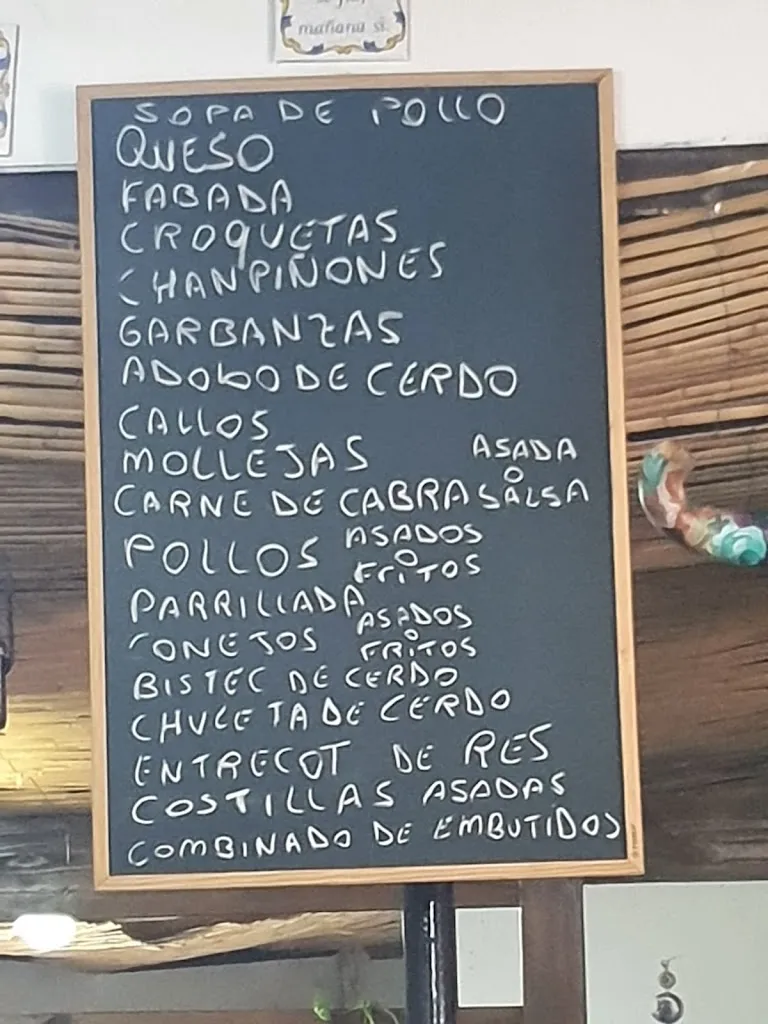 mañana sí.
SOPA DE POLLO
QUESO
FABADA
CROQUETAS
CHANPIÑONES
GARBANZAS
ADOBO DE CERDO
CALLOS
MOLLEJAS
CARNE DE CABRA ASADA O SALSA
POLLOS ASADOS O FRITOS
PARRILLADA
CONEJOS ASADOS O FRITOS
BISTEC DE CERDO
CHULETA DE CERDO
ENTRECOT DE RES
COSTILLAS ASADAS
COMBINADO DE EMBUTIDOS